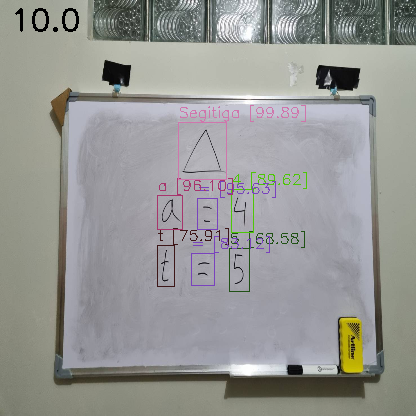 10.0
Segitiga [99.89]
a [96.10] = [95.63] 4 [89.62]
a = 4
t [75.91] = [83.12] 5 [68.58]
t = 5
Artline